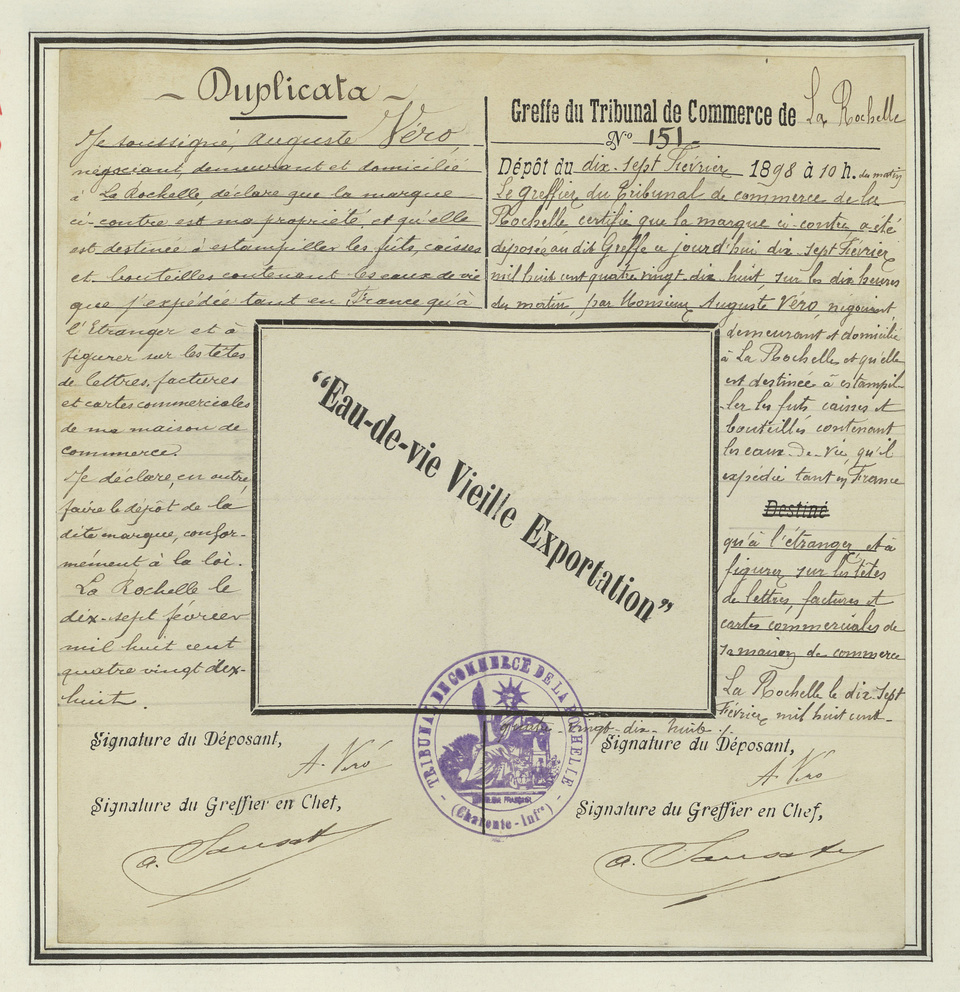 Duplicata
Je soussigné, Auguste Véro,
négociant, demeurant et domicilié
à La Rochelle, déclare que la marque
ci-contre est ma propriété et qu'elle
est destinée à estampiller les fûts, caisses
et bouteilles contenant les eaux de vie
que j'expédie tant en France qu'à
l'Etranger et à
figurer sur les têtes
de lettres, factures
et cartes commerciales
de ma maison de
commerce.
Je déclare, en outre,
faire le dépôt de la
dite marque, confor-
mément à la loi.
La Rochelle le
dix-sept février
mil huit cent
quatre vingt dix-
huit.
Signature du Déposant,
A. Véro
Signature du Greffier en Chef,
Greffe du Tribunal de Commerce de La Rochelle
No 151.
Dépôt du dix-sept Février 1898 à 10 h. du matin
Le greffier du Tribunal de commerce de la
Rochelle certifie que la marque ci-contre, a été
déposée au dit Greffe ce jourd'hui dix-sept Février
mil huit cent quatre vingt dix huit, sur les dix heures
du matin, par Monsieur Auguste Véro, négociant,
demeurant et domicilié
à La Rochelle et qu'elle
est destinée à estampil-
ler les futs caisses et
bouteilles contenant
les eaux-de-vie, qu'il
expédie tant en France
Destiné
qu'à l'étranger et à
figurer sur les têtes
de lettres, factures et
cartes commerciales de
sa maison de commerce
La Rochelle le dix sept
Février mil huit cent-
quatre-vingt-dix-huit.
Signature du Déposant,
A. Véro
Signature du Greffier en Chef,
“Eau-de-vie Vieille Exportation”
TRIBUNAL DE COMMERCE DE LA ROCHELLE
(Charente-Infre)